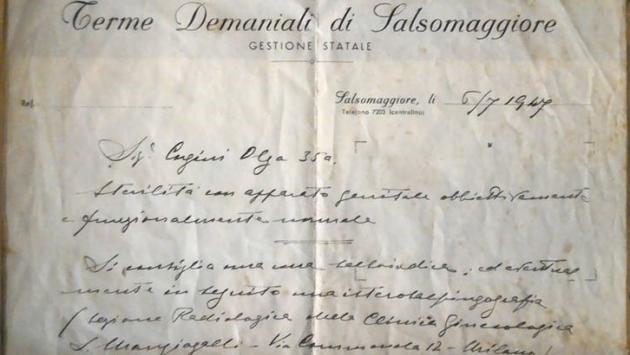 Terme Demaniali di Salsomaggiore
GESTIONE STATALE
Ref.
Salsomaggiore, li 6/7 1947
Telefono 7203 (centralino)
Sigª Cugini Olga 35 a.
Sterilità con apparato genitale obbiettivamente
e funzionalmente normale
Si consiglia una cura salsoiodica, ed eventual
mente in seguito una isterosalpingografia
(Sezione Radiologica della Clinica Ginecologica
L. Mangiagalli - Via Commenda 12 - Milano)